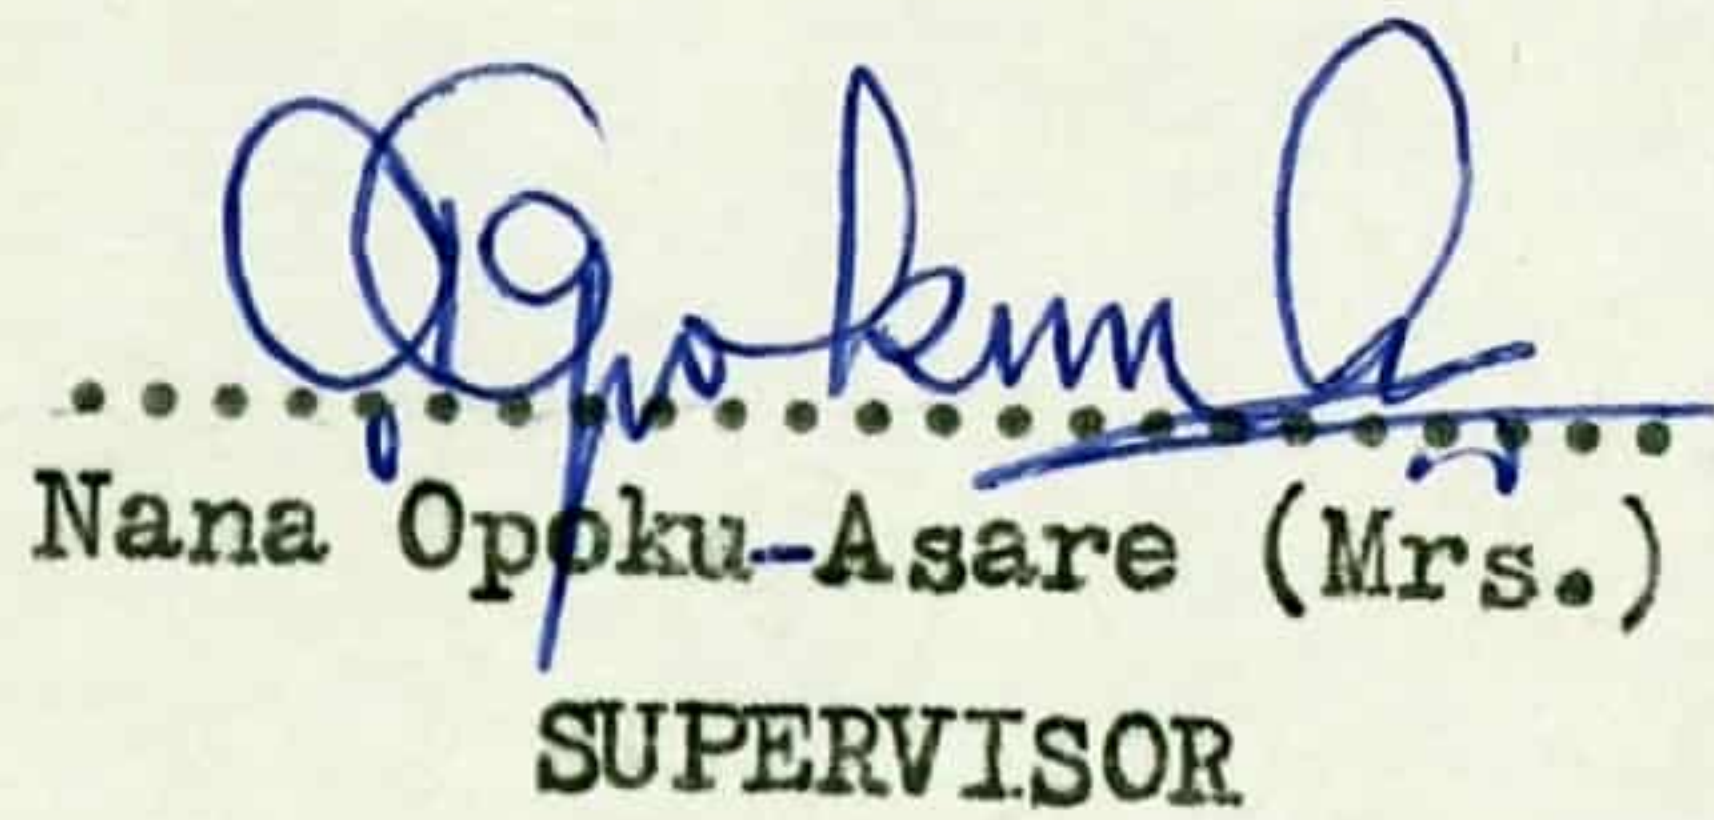 Nana Opoku-Asare (Mrs.)
SUPERVISOR